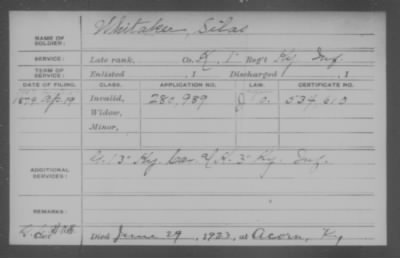 NAME OF SOLDIER: Whitaker, Silas
SERVICE: Late rank, Co. K, Reg't Ky Inf
TERM OF SERVICE: Enlisted , 1 Discharged , 1
DATE OF FILING. CLASS. APPLICATION NO. LAW. CERTIFICATE NO.
1879 Apr 19 Invalid, 280,989 534 610
Widow,
Minor,
ADDITIONAL SERVICES: Ky. Cav. & K. 3 Ky. Inf.
REMARKS:
Died June 29, 1923, at Acorn, Ky